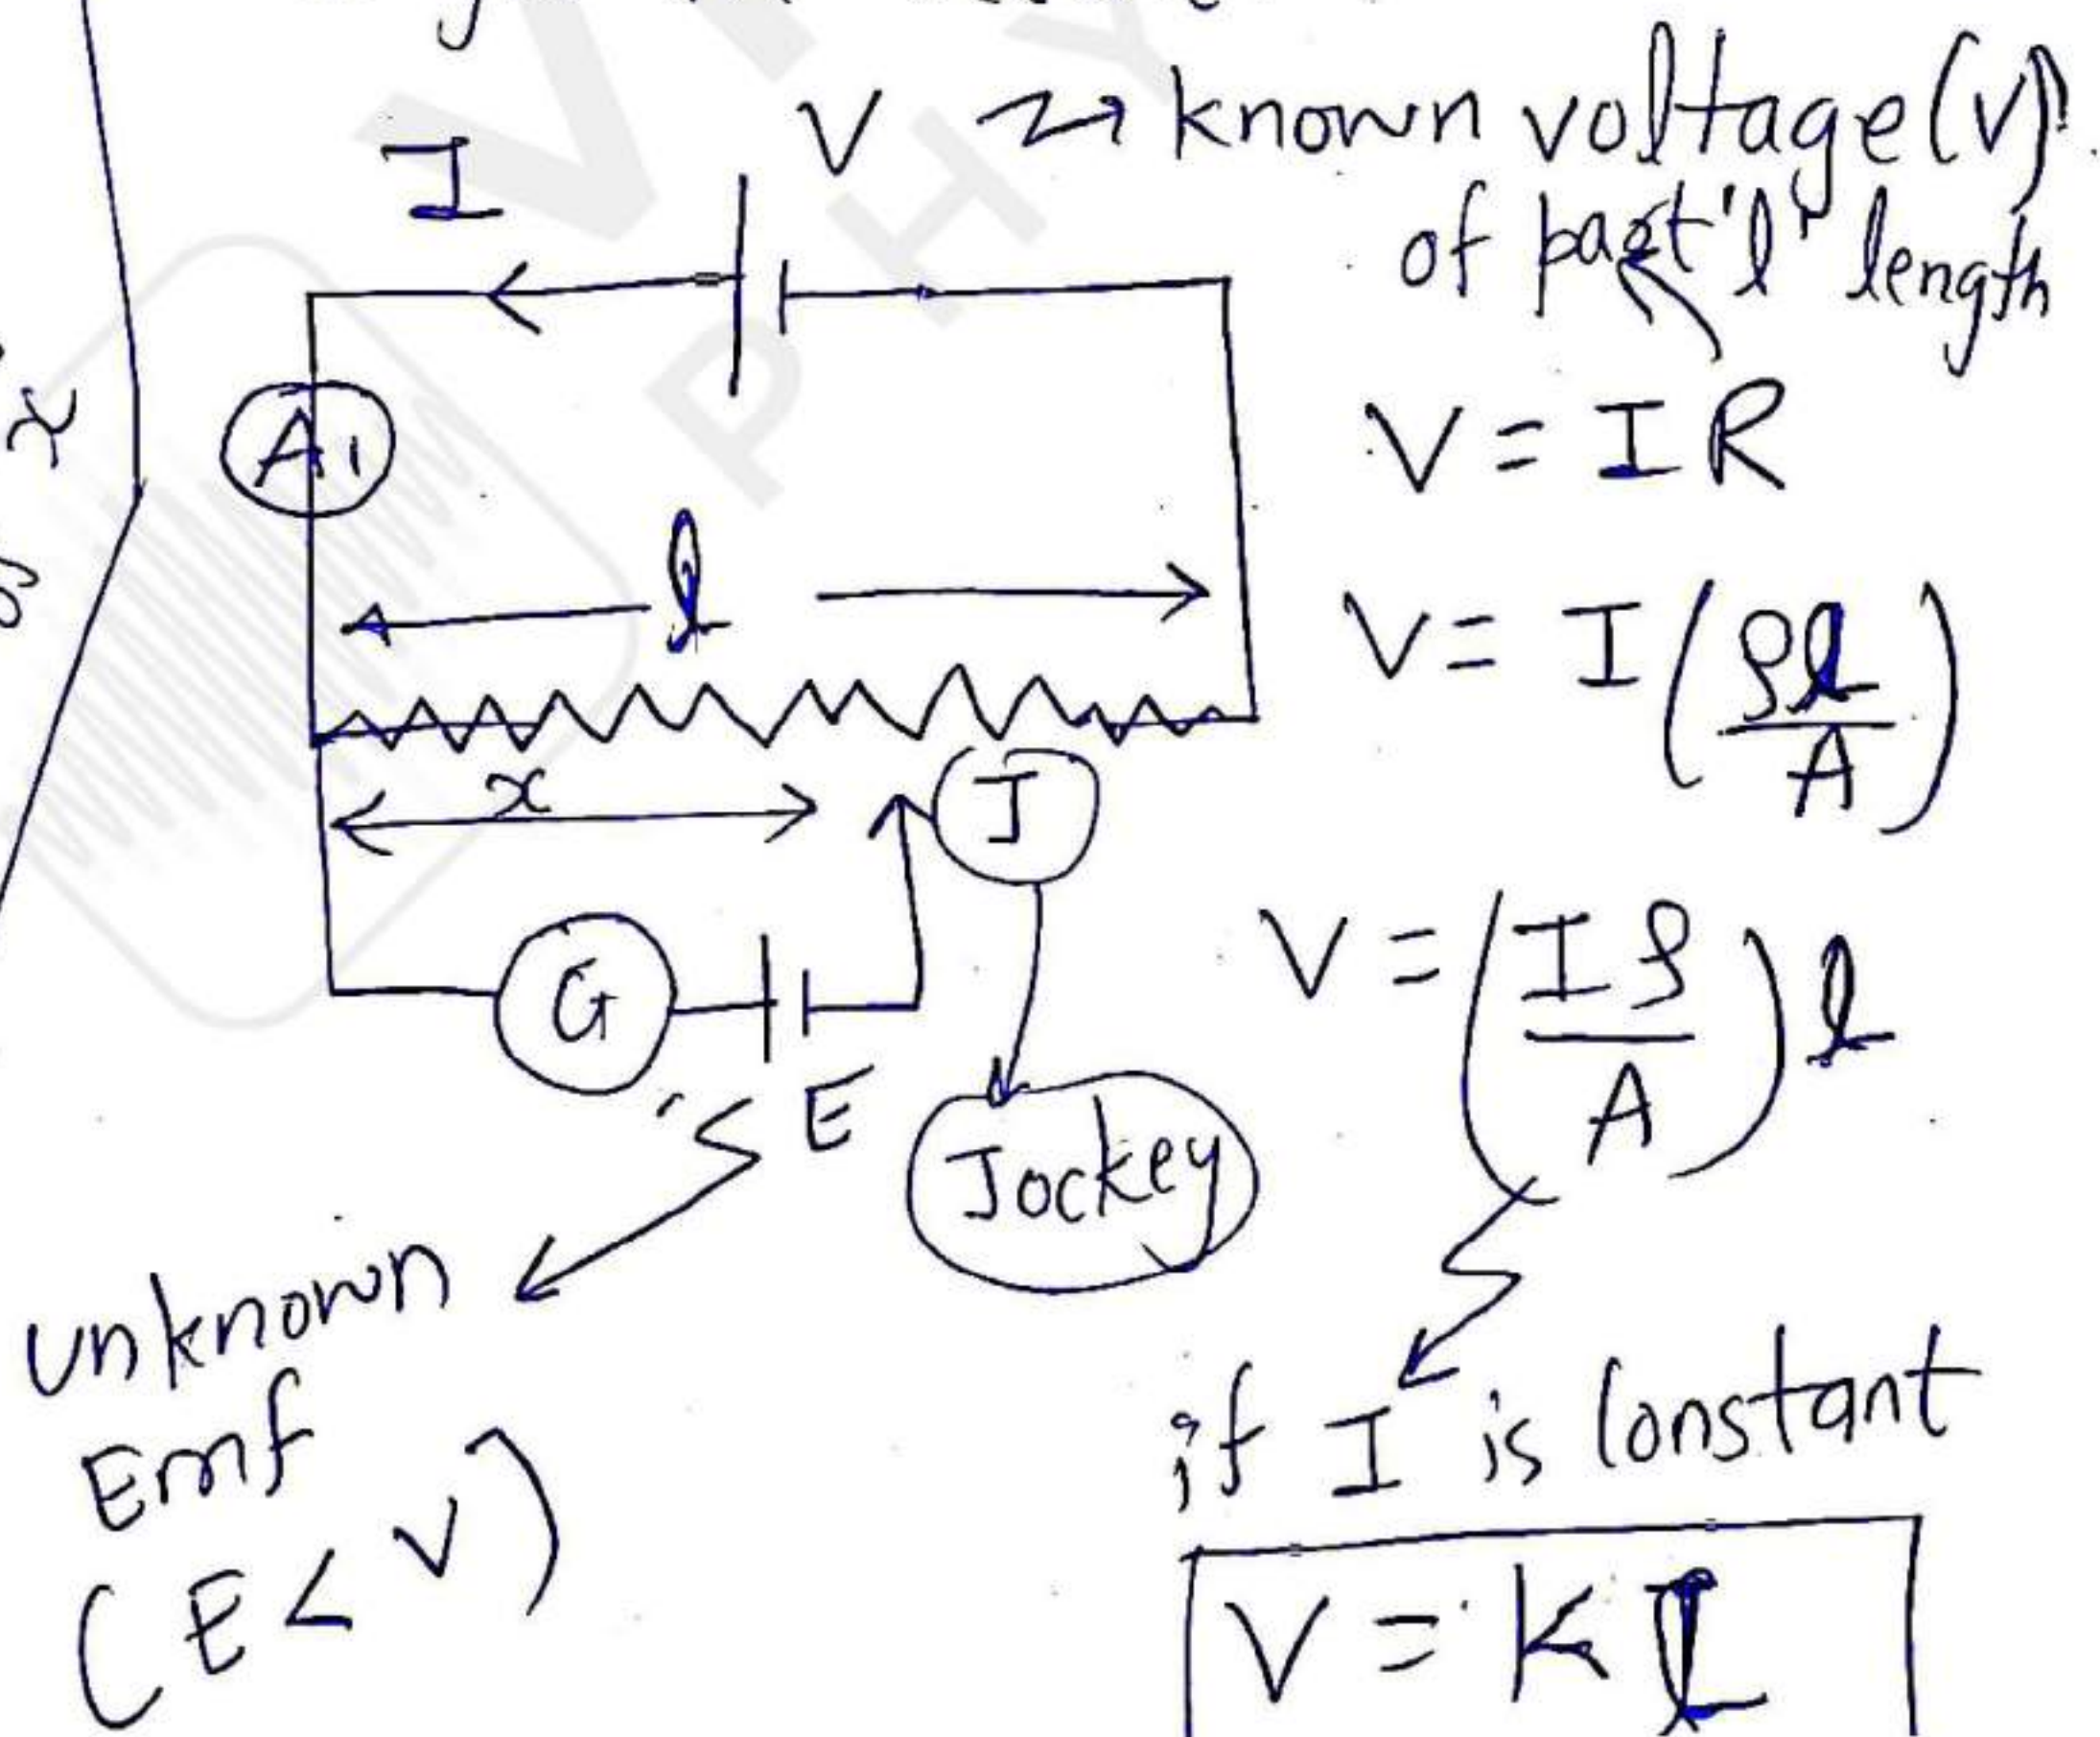 V → known voltage (V)
of part 'l' length
I
A1
l
x
J
G
E
Jockey
unknown
Emf
(E < V)
V = IR
V = I(ρl/A)
V = (Iρ/A)l
if I is constant
V = Kl
x